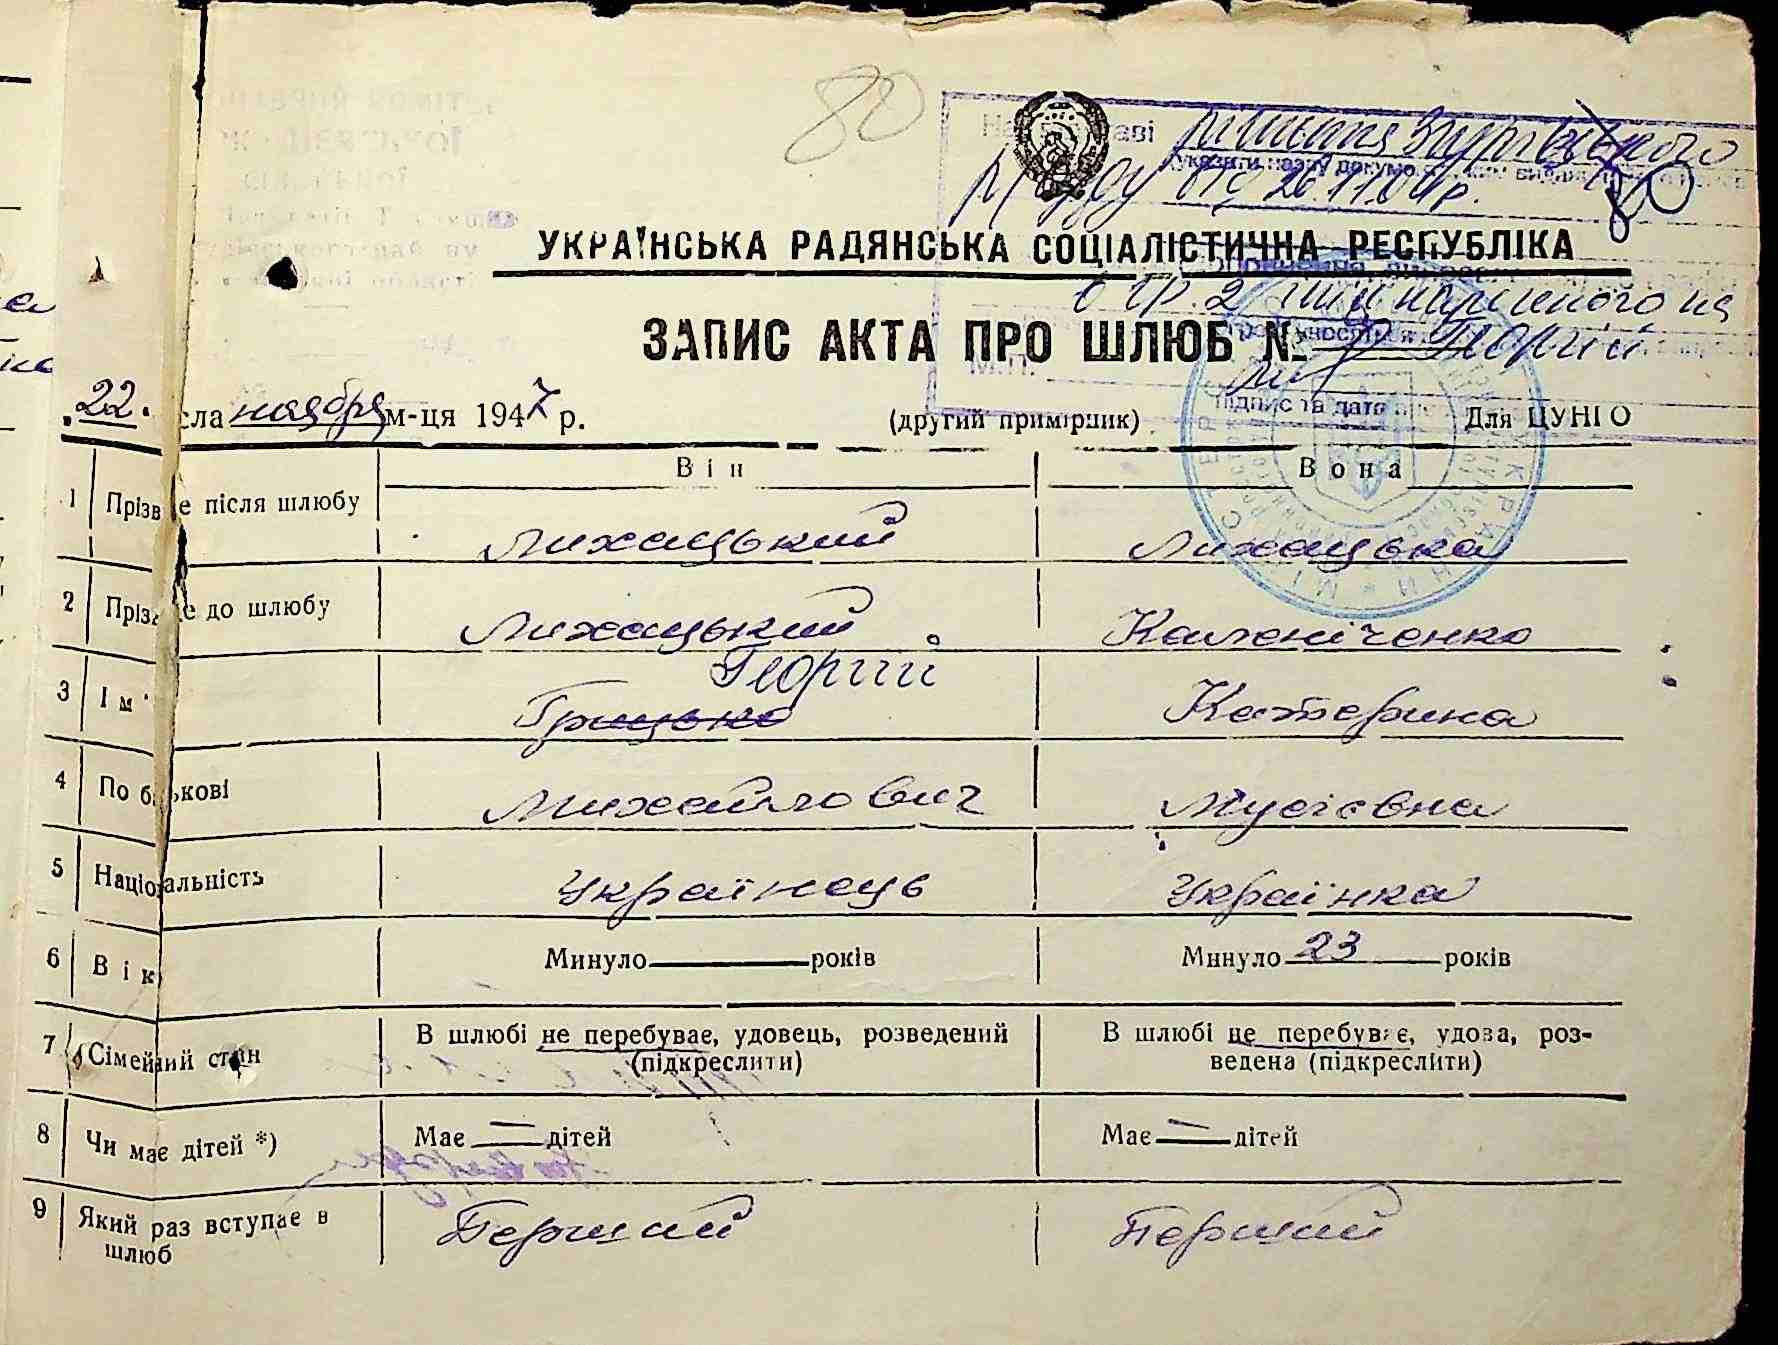 80
На підставі рішення
вказати назву документа, ким виданий
суду від 26.11.04р. 80
УКРАЇНСЬКА РАДЯНСЬКА СОЦІАЛІСТИЧНА РЕСПУБЛІКА
в гр. 2 ім'я нареченого на
ЗАПИС АКТА ПРО ШЛЮБ № Георгій
М.П.
підпис та дата
22 числа ноября м-ця 1947 р. (другий примірник) Для ЦУНГО
Він Вона
1 Прізвище після шлюбу Лихацький Лихацька
2 Прізвище до шлюбу Лихацький Каленіченко
Георгій
3 Ім' Грицько Катерина
4 По батькові Михайлович Мусієвна
5 Національність Українець Українка
6 Вік Минуло років Минуло 23 років
7 Сімейний стан В шлюбі не перебуває, удовець, розведений (підкреслити) В шлюбі не перебуває, удова, роз-
ведена (підкреслити)
8 Чи має дітей *) Має — дітей Має — дітей
9 Який раз вступає в Перший Перший
шлюб